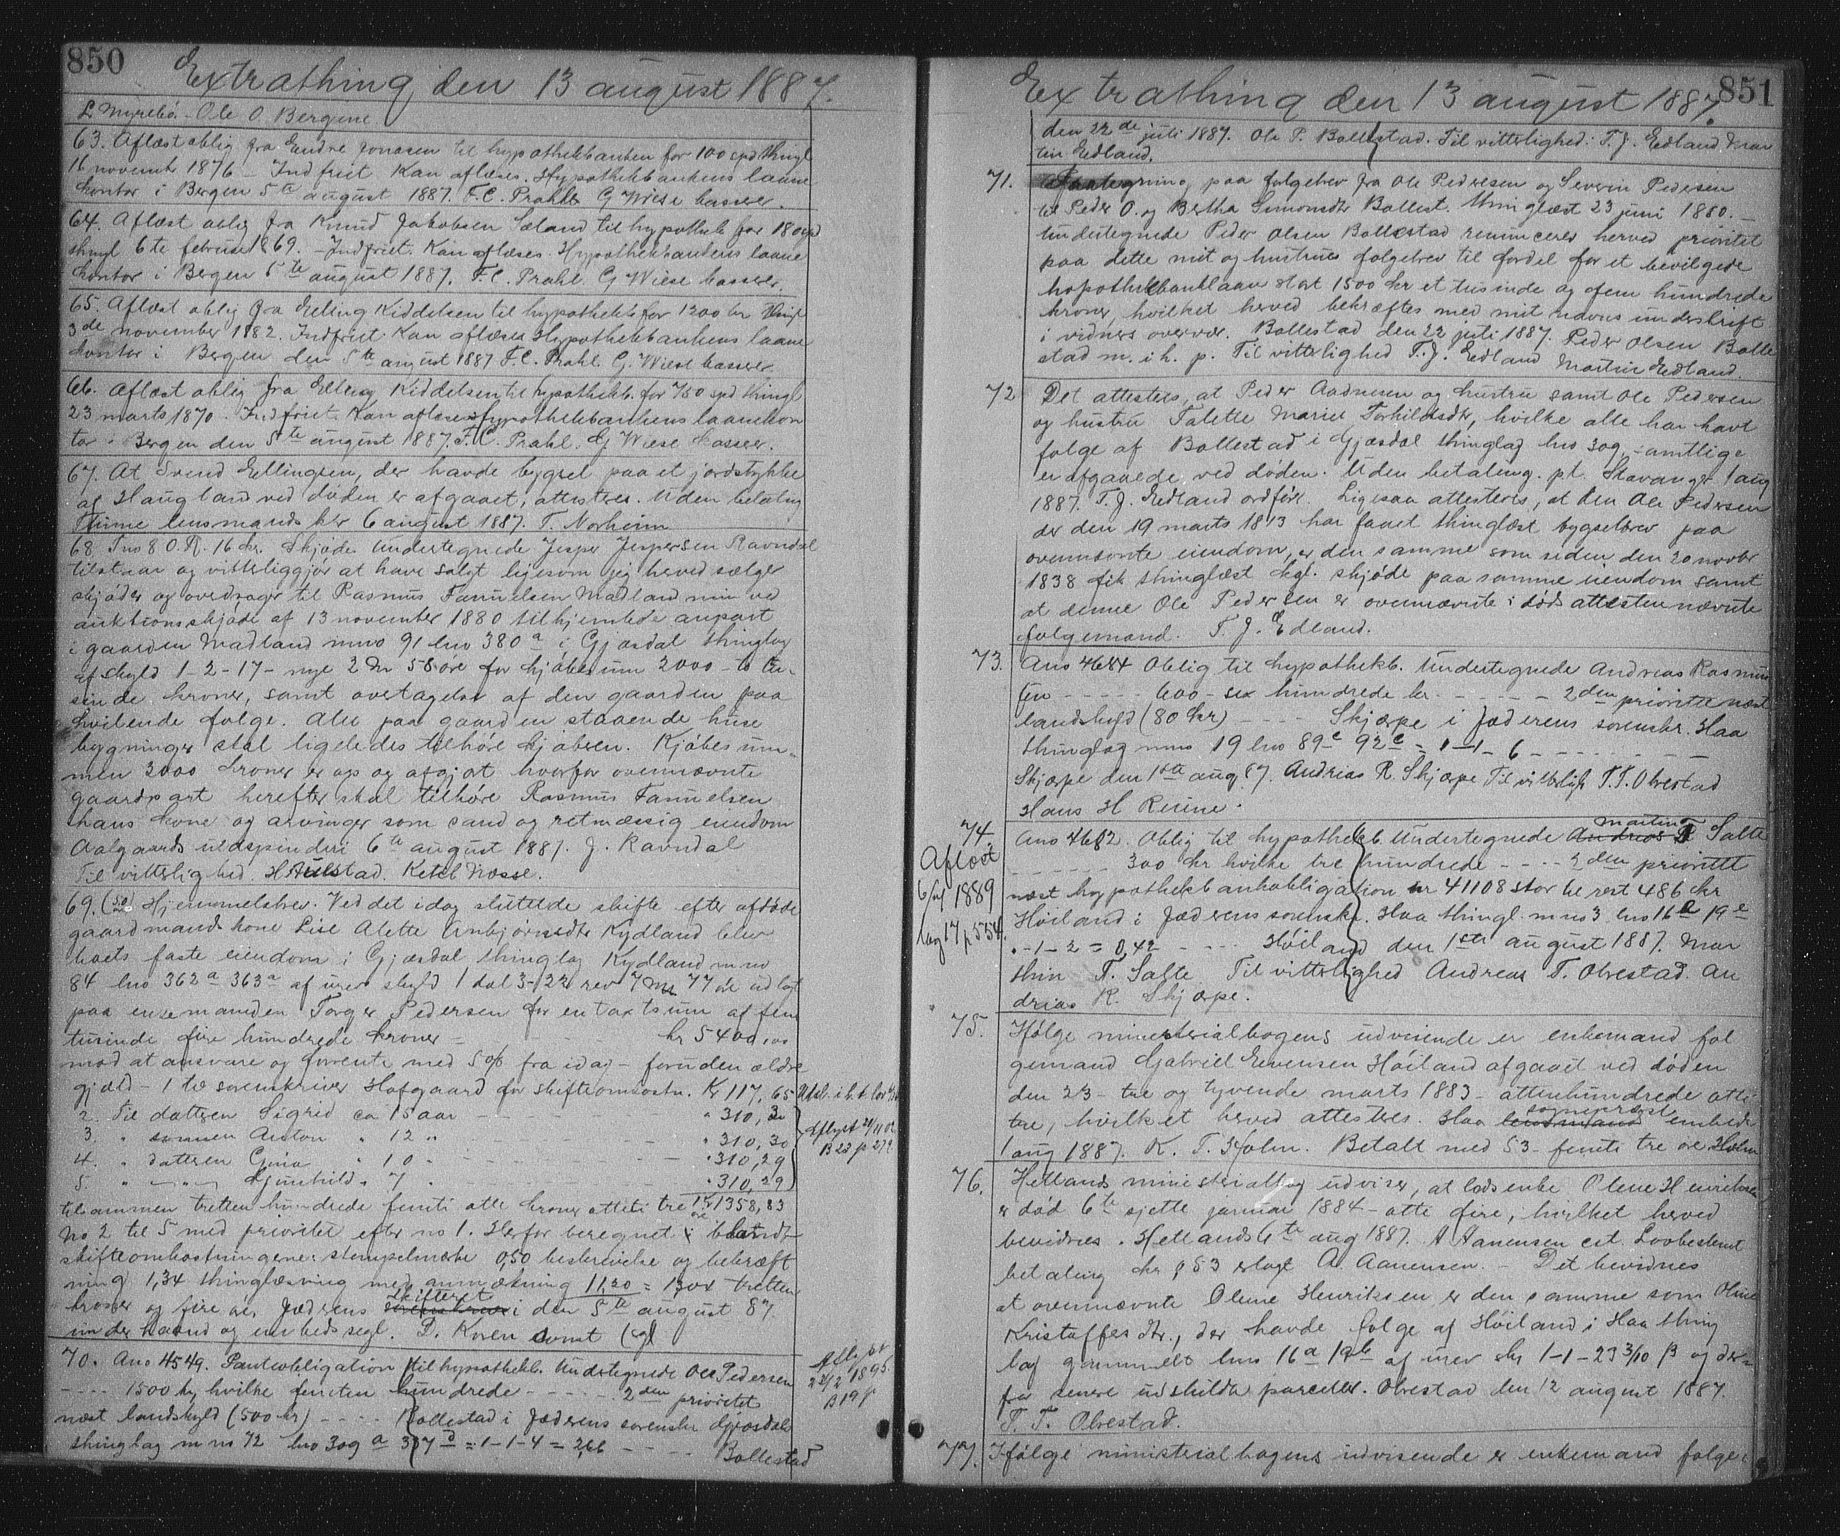 850
Extrathing den 13 august 1887.
L Myrebö. Ole O. Bergene
63. Aflæst oblig fra Endre Jonasen til hypothekbanken for 100 spd thingl
16 november 1876 – Indfriet Kan aflæses. Hypothekbankens laane
kontor i Bergen 5te august 1887. F.C. Prahl. G Wiese kasserer.
64. Aflæst oblig fra Knud Jakobsen Sæland til hypothek for 180 spd
thingl 6te februar 1869. – Indfriet. Kan aflæses. Hypothekbankens laane
kontor i Bergen 5te august 1887. F.C. Prahl. G Wiese kasserer.
65. Aflæst oblig fra Elling Kiddelsen til hypothekb for 1200 kr thingl
3de november 1882. Indfriet Kan aflæses Hypothekbankens laane
kontor i Bergen den 5te august 1887 F.C. Prahl. G. Wiese kasserer.
66. Aflæst oblig fra Elling Kiddelsen til hypothekb. for 750 spd thingl
23 marts 1870. Indfriet. Kan aflæses Hypothekbankens laanekon
tor i Bergen den 5te august 1887. F.C. Prahl. G Wiese kasserer.
67. At Svend Ellingsen, der havde bygsel paa et jordstykke
af Haugland ved døden er afgaaet, attesteres. Uden betaling
Thime lensmandsktr 6 august 1887. T. Norheim
68. Tno 8 O.R. 16 kr. Skjøde Undertegnede Jesper Jespersen Ravndal
tilstaar og vitterliggjør at have solgt ligesom jeg herved sælger
skjøder og overdrager til Rasmus Tanuelsen Madland min ved
auktionsskjøde af 13 november 1880 tilhjemlede anpart
i gaarden Madland mno 91 lno 380a i Gjæsdal thinglag
af skyld 1-2-17- nye 2 M 58 øre for kjøbesum 2000 – to tu-
sinde kroner, samt overtagelse af den gaarden paa
hvilende folge. Alle paa gaarden staaende huse
bygninger skal ligeledes tilhøre kjøberen. Kjøbesum-
men 2000 kroner er op og afgjort hvorfor ovennævnte
gaardpart herefter skal tilhøre Rasmus Tanuelsen
hans kone og arvinger som sand og retmæssig eiendom
Aalgaards uldspinderi 6te august 1887. J. Ravndal
Til vitterlighed. H Aulstad. Ketel Næsse.
69. Hjemmelsbrev. Ved det idag sluttede skifte efter afdøde
gaardmandskone Lise Alette Unbjørnsdtr Kydland blev
boets faste eiendom i Gjæsdal thinglag Kydland mno
84 lno 362a 363a af urev skyld 1 dal 3-22 rev 7 M 77 øre udlagt
paa enkemanden Torger Pedersen for en taxtsum af fem
tusinde fire hundrede kroner – kr 5400,00
mod at ansvare og forrente med 5% fra idag – foruden ældre
gjæld – 1 til sorenskriver Hofgaard for skifteomkostn. Kr 117,65
2. Til datteren Sigrid ca 15 aar – " 310,30
3. " sønnen Anton " 12 " – " 310,30
4. " datteren Gina " 10 " – " 310,29
5 " – " – Gunhild " 7 " – " 310,29
tilsammen tretten hundrede femti otte kroner otteti tre øre Kr 1358,83
Aflyst 2/11 02
B 22 p 279
No 2 til 5 med prioritet efter no 1. Herfor beregnet i blandt
skifteomkostningene: stempelmærke 0,50 beskrivelse og bekræft
ning 1,34 thinglæsning med anmærkning 11,20 = 13,04 tretten
kroner og fire øre. Jæderens skifteret sorenskriveri den 5te august 87.
under haand og embedssegl. D. Koren const (sgl
70. Ano 4549. Panteobligation til hypothekb. Undertegnede Ole Pedersen
---- 1500 kr hvilke femten hundrede ---- 2den prioritet
næst landskyld (500 kr) ---- Bollestad i Jæderens sorenskr Gjæsdals
thinglag mno 72 lno 309a 307d = 1-1-4 = 2,66 ---- Bollestad
Aflyst
22/2 1895
B 19 p
851
Extrathing den 13 august 1887.
den 22de juli 1887. Ole P. Bollestad. Til vitterlighed: T. J. Edland. Mar
tin Edland.
71. Paategning paa folgebrev fra Ole Pedersen og Severin Pedersen
til Peder O. og Bertha Simonsdtr Bollest. thinglæst 23 juni 1880. –
Undertegnede Peder Olsen Bollestad renuncerer herved prioritet
paa dette mit og hustrues folgebrev til fordel for et bevilgede
hypothekbanklaan stort 1500 kr et tusinde og fem hundrede
kroner, hvilket herved bekræftes med mit navns underskrift
i vidners overvær. Bollestad den 22 juli 1887. Peder Olsen Bolle
stad m. i h. p. Til vitterlighed T. J. Edland Martin Edland.
72 Det attesters, at Peder Aadnesen og hustru samt Ole Pedersen
og hustru Talette Marie Torkildsdtr, hvilke alle har havt
folge af Bollestad i Gjæsdal thinglag lno 309, samtlige
er afgaaede ved døden. Uden betaling. p.t. Stavanger 1 aug
1887. T. J. Edland ordfører. Ligesaa attesteres, at den Ole Pedersen
der den 19 marts 1813 har faaet thinglæst bygselbrev paa
ovennævnte eiendom, er den samme som siden den 20 novbr
1838 fik thinglæst kgl. skjøde paa samme eiendom samt
at denne Ole Pedersen er ovennævnte i døds attesten nævnte
folgemand. T. J. Edland.
73. Ano 4684 Oblig til hypothekb. Undertegnede Andreas Rasmus
sen ---- 600 – sex hundrede kr. ---- 2den prioritet næst
landskyld (80 kr) ---- Skjærpe i Jæderens sorenskr. Haa
thinglag mno 19 lno 89c 92c = 1-1-6 ----
Skjærpe den 1ste aug 87. Andrias R. Skjærpe Til vitterligh T. T. Obrestad
Hans H Reime.
74. Ano 4682. Oblig til hypothekb. Undertegnede Andrias R Martin T Salte
---- 300 kr hvilke tre hundrede ---- 2den prioritet
næst hypothekbankobligation nr 41108 stor til rest 486 kr
Høiland i Jæderens sorenskr. Haa thingl. mno 3 lno 16b 19e
. -1-2 = 0,42 ---- Høiland den 1ste august 1887. Mar
thin T. Salte Til vitterlighed Andreas T. Obrestad. An
drias R. Skjærpe.
Aflæst
6/7 1889
bog 17 p 554.
75. Ifølge ministerialbogens udvisende er enkemand fol
gemand Gabriel Evensen Høiland afgaaet ved døden
den 23 – tre og tyvende marts 1883 – attenhundrede otti
tre, hvilket herved attesteres. Haa lensmand sogneprest embede
1 aug 1887. K. T. Holm. Betalt med 53 – femti tre øre Holm
76. Hetlands ministerialbog udviser, at losenke Olene Henriksen
er død 6te sjette januar 1884 – otti fire, hvilket herved
bevidnes. Hetlands 6te aug 1887. A Aanensen cst. Lovbestemt
betaling kr 0,53 erlagt A. Aanensen. – Det bevidnes
at ovennævnte Olene Henriksen er den samme som Olene
Kristoffersdtr., der havde folge af Høiland i Haa thing
lag gammelt lno 16a 19b af urev sk 1-1-23 3/10 β og der-
fra senere udskildte parceller. Obrestad den 12 august 1887.
T. T. Obrestad.
77. Ifølge ministerialbogens udvisende er enkemand folge-